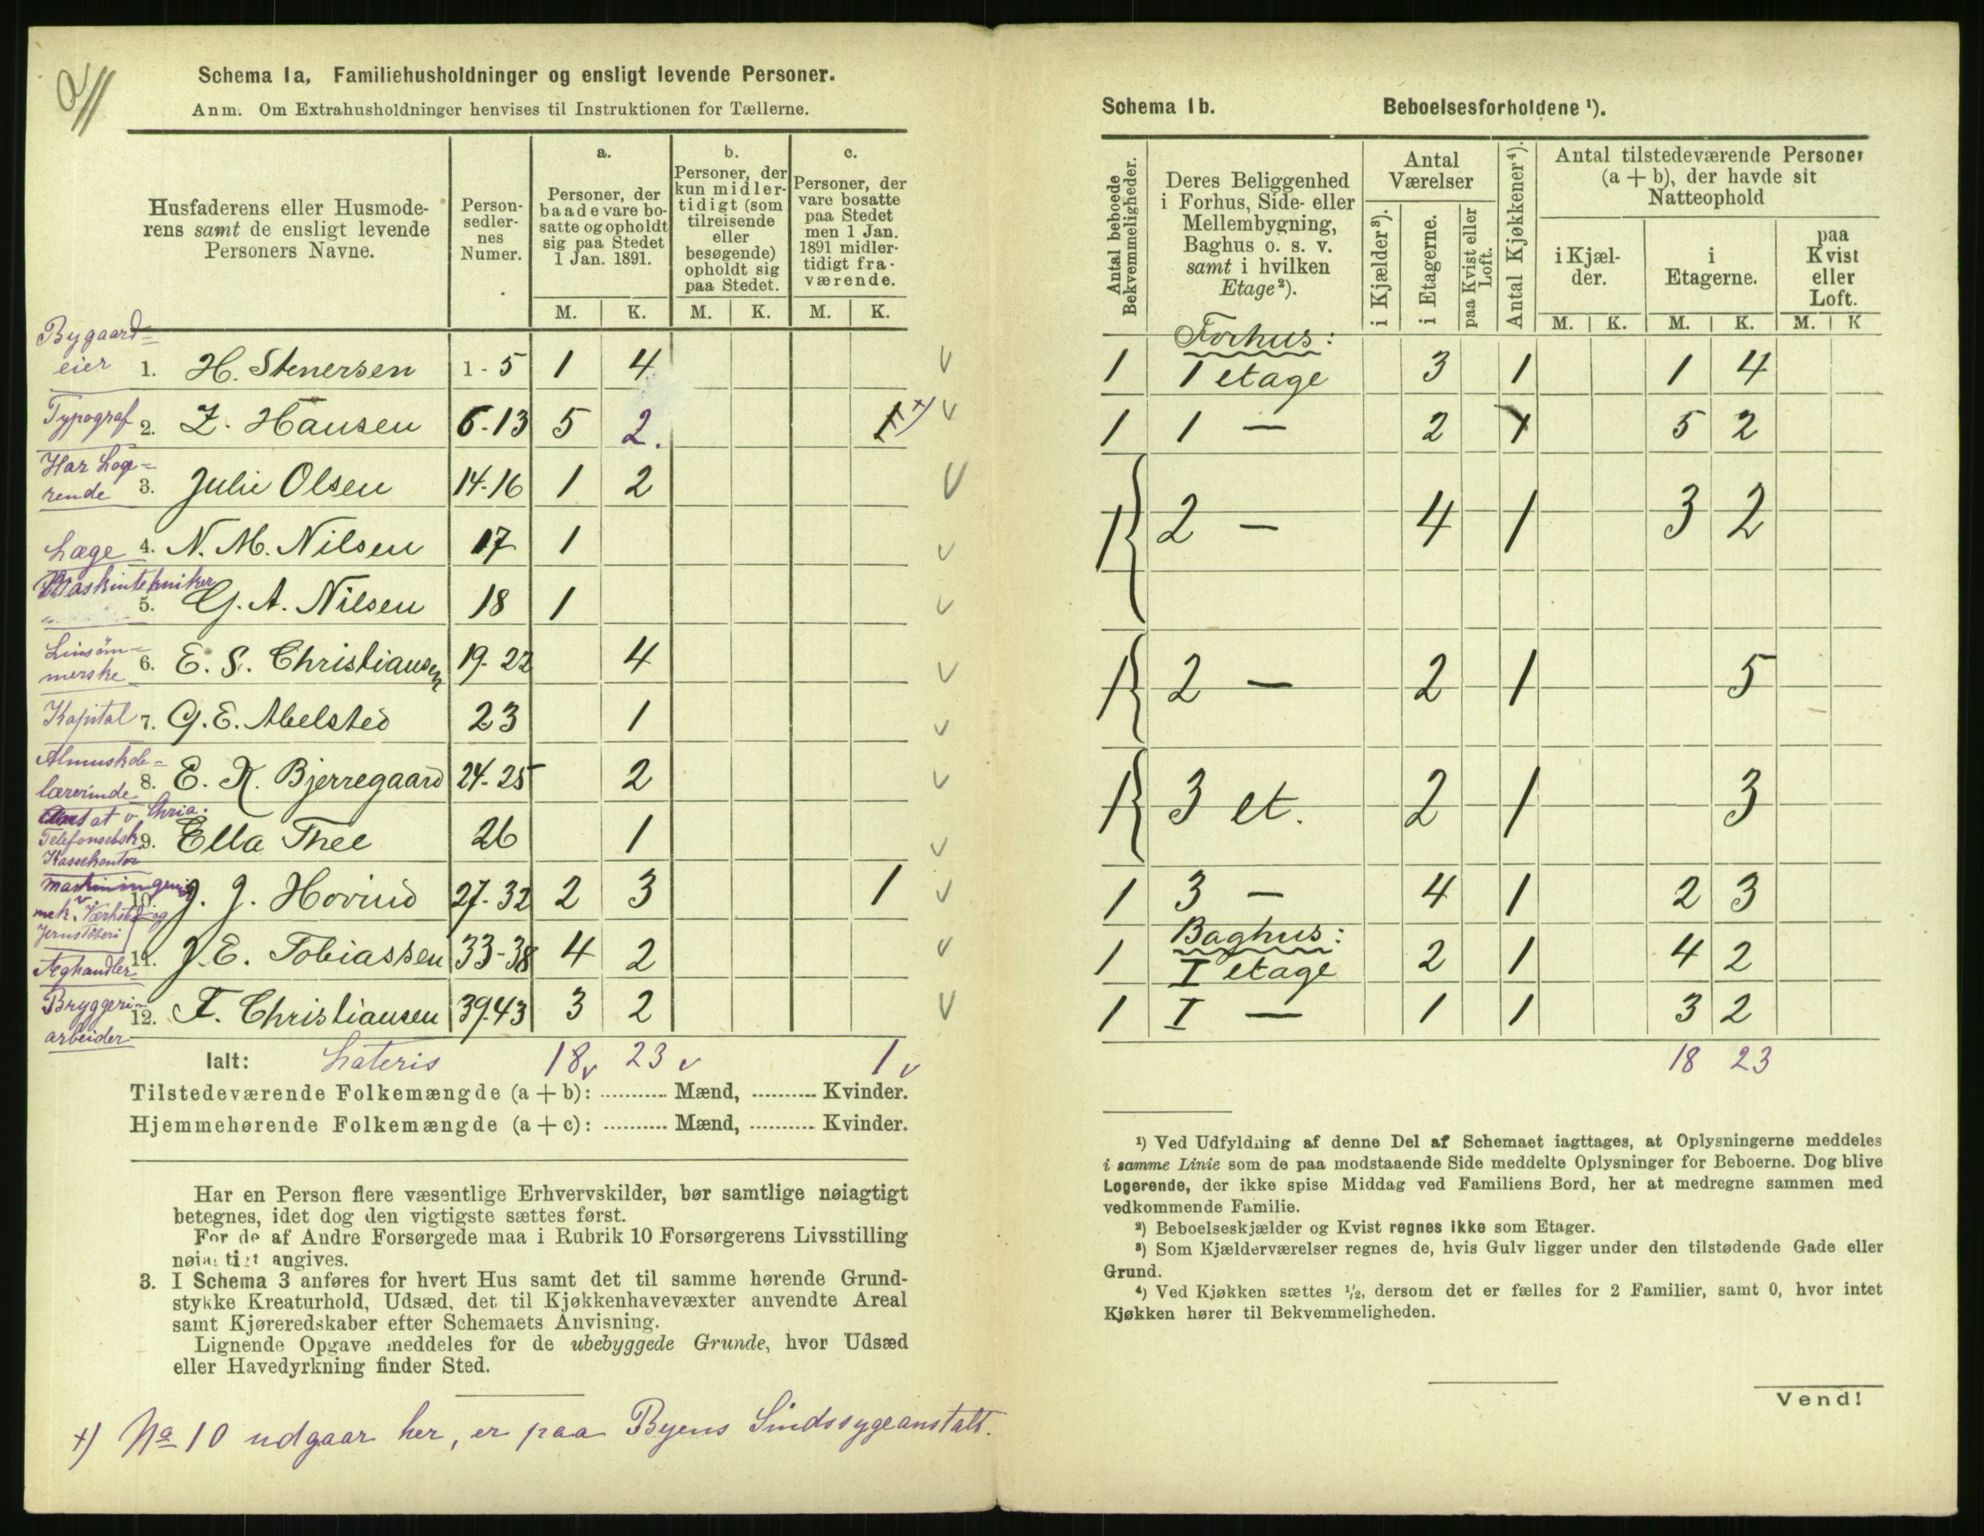 2//
Schema 1a. Familiehusholdninger og ensligt levende Personer.
Anm. Om Extrahusholdninger henvises til Instruktionen for Tællerne.
Husfaderens eller Husmoderens samt de ensligt levende Personers Navne.
Personsedlernes Numer.
a. Personer, der baade vare bosatte og opholdt sig paa Stedet 1 Jan. 1891.
b. Personer, der kun midlertidigt (som tilreisende eller besøgende) opholdt sig paa Stedet.
c. Personer, der vare bosatte paa Stedet men 1 Jan. 1891 midlertidigt fraværende.
M. K. M. K. M. K.
Bygaardeier 1. H. Stenersen 1-5 1 4 v
Typograf 2. Z. Hansen 6-13 5 2. 1 +) v
Har Logerende 3. Julie Olsen 14-16 1 2 v
Læge 4. N. M. Nilsen 17 1 v
Maskintekniker 5. G. A. Nilsen 18 1 v
Linsømmerske 6. E. S. Christiansen 19-22 4 v
Kapital 7. G. E. Abelsted 23 1 v
Almuskolelærerinde 8. E. K. Bjerregaard 24-25 2 v
Ansat v Chria. Telefonselsk. Kassekontor 9. Ella Thee 26 1 v
Maskiningeniør v. mek. Værksted og Jernstøberi 10. J. J. Hovind 27-32 2 3 1 v
Æghandler 11. J. E. Tobiassen 33-38 4 2 v
Bryggeriarbeider 12. F. Christiansen 39-43 3 2 v
Ialt: Lateris 18 v 23 v 1 v
Tilstedeværende Folkemængde (a + b): ........... Mænd, ........... Kvinder.
Hjemmehørende Folkemængde (a + c): ........... Mænd, ........... Kvinder.
Har en Person flere væsentlige Erhvervskilder, bør samtlige nøiagtigt
betegnes, idet dog den vigtigste sættes først.
For de af Andre Forsørgede maa i Rubrik 10 Forsørgerens Livsstilling
nøiagtigt angives.
3. I Schema 3 anføres for hvert Hus samt det til samme hørende Grund-
stykke Kreaturhold, Udsæd, det til Kjøkkenhavevæxter anvendte Areal
samt Kjøreredskaber efter Schemaets Anvisning.
Lignende Opgave meddeles for de ubebyggede Grunde, hvor Udsæd
eller Havedyrkning finder Sted.
+) No 10 udgaar her, er paa Byens Sindssygeanstalt.
Schema 1b. Beboelsesforholdene ¹).
Antal beboede Bekvemmeligheder.
Deres Beliggenhed i Forhus, Side- eller Mellembygning, Baghus o. s. v. samt i hvilken Etage²).
Antal Værelser
i Kjælder³).
i Etagerne.
paa Kvist eller Loft.
Antal Kjøkkener⁴).
Antal tilstedeværende Personer (a + b), der havde sit Natteophold
i Kjælder.
i Etagerne.
paa Kvist eller Loft.
M. K. M. K. M. K
Forhus:
1 1 etage 3 1 1 4
1 1 — 2 1 5 2
1 2 — 4 1 3 2
1 2 — 2 1 5
1 3 et. 2 1 3
1 3 — 4 1 2 3
Baghus:
1 I etage 2 1 4 2
1 I — 1 1 3 2
18 23
¹) Ved Udfyldning af denne Del af Schemaet iagttages, at Oplysningerne meddeles
i samme Linie som de paa modstaaende Side meddelte Oplysninger for Beboerne. Dog blive
Logerende, der ikke spise Middag ved Familiens Bord, her at medregne sammen med
vedkommende Familie.
²) Beboelseskjælder og Kvist regnes ikke som Etager.
³) Som Kjælderværelser regnes de, hvis Gulv ligger under den tilstødende Gade eller
Grund.
⁴) Ved Kjøkken sættes ¹/₂, dersom det er fælles for 2 Familier, samt 0, hvor intet
Kjøkken hører til Bekvemmeligheden.
Vend!